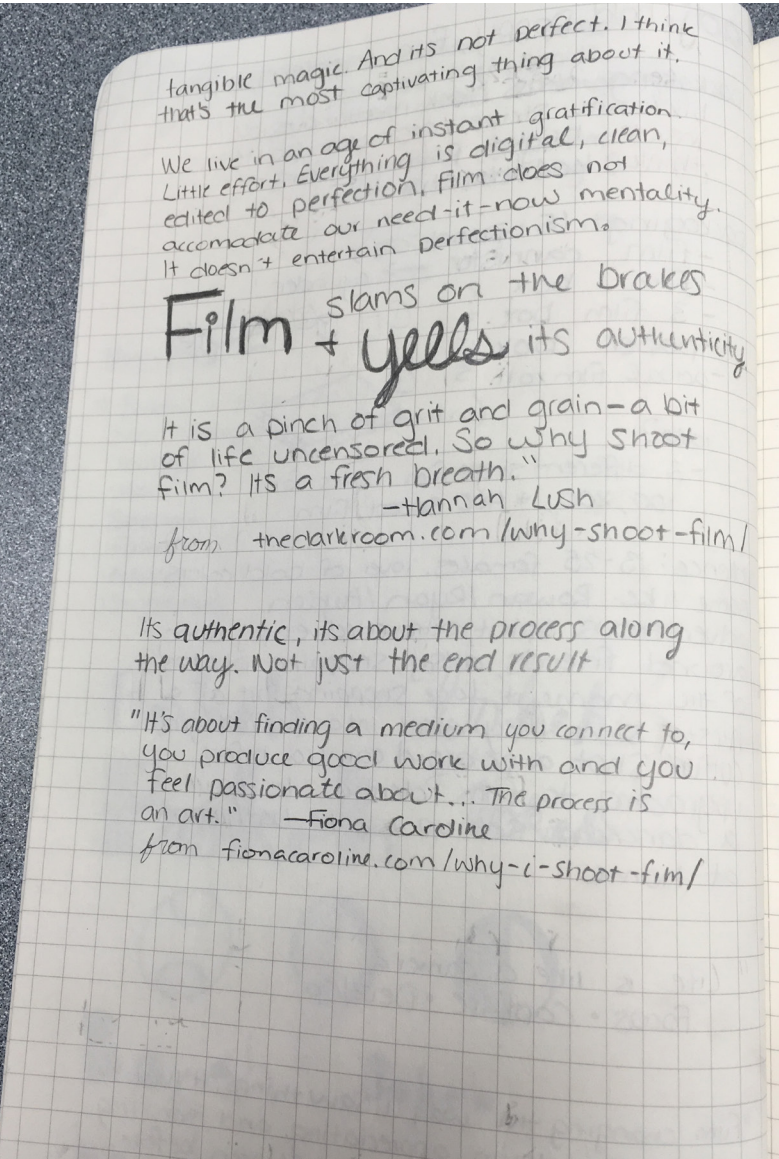 tangible magic. And its not perfect. I think
that's the most captivating thing about it.
We live in an age of instant gratification.
Little effort. Everything is digital, clean,
edited to perfection. Film does not
accomodate our need-it-now mentality.
It doesn't entertain perfectionism.
Film slams on the brakes
+ yells its authenticity
It is a pinch of grit and grain - a bit
of life uncensored. So why shoot
film? Its a fresh breath."
-Hannah Lush
from thedarkroom.com/why-shoot-film/
Its authentic, its about the process along
the way. Not just the end result
"It's about finding a medium you connect to,
you produce good work with and you
feel passionate about... The process is
an art." -Fiona Caroline
from fionacaroline.com/why-i-shoot-fim/